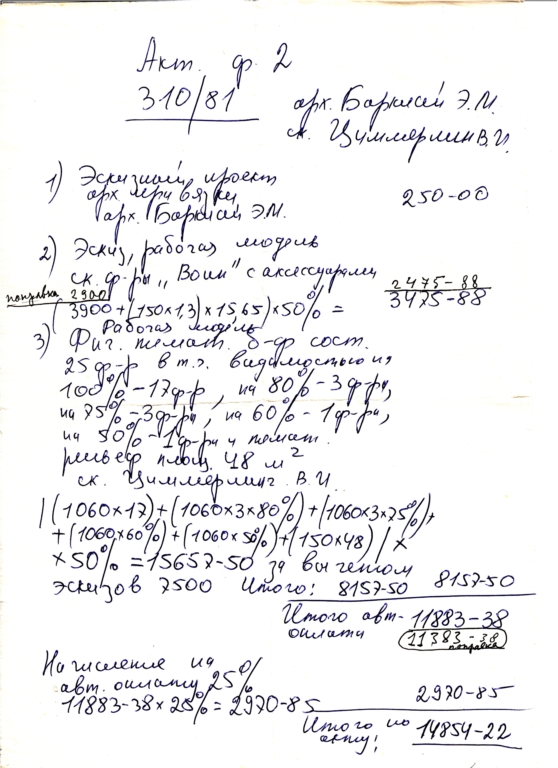 Акт. ф. 2
310/81
арх. Барклай Э.М.
ск. Циммерлинг В.И.
1) Эскизный проект
арх. привязки
арх. Барклай Э.М. 250-00
2) Эскиз, рабочая модель
ск. ф-ры „Воин" с аксессуарами
поправка 2900 2475-88
(3900 + (150×1,3)×15,65)×50% = 3475-88
Рабочая модель
3) Фиг. темат. б-ф сост.
25 ф-р в т.ч. видимостью на
100% - 17 ф-р, на 80% - 3 ф-ры,
на 75% - 3 ф-ры, на 60% - 1 ф-ры,
на 50% - 1 ф-ры и темат.
рельеф площ. 48 м²
ск. Циммерлинг В.И.
|(1060×17)+(1060×3×80%)+(1060×3×75%)+
+(1060×60%)+(1060×50%)+(150×48)|×
×50% = 15657-50 за вычетом
эскизов 7500 Итого: 8157-50 8157-50
Итого авт. 11883-38
оплата 11383-38
поправка
Начисление на
авт. оплату 25%
11883-38×25% = 2970-85 2970-85
Итого по
акту: 14854-22